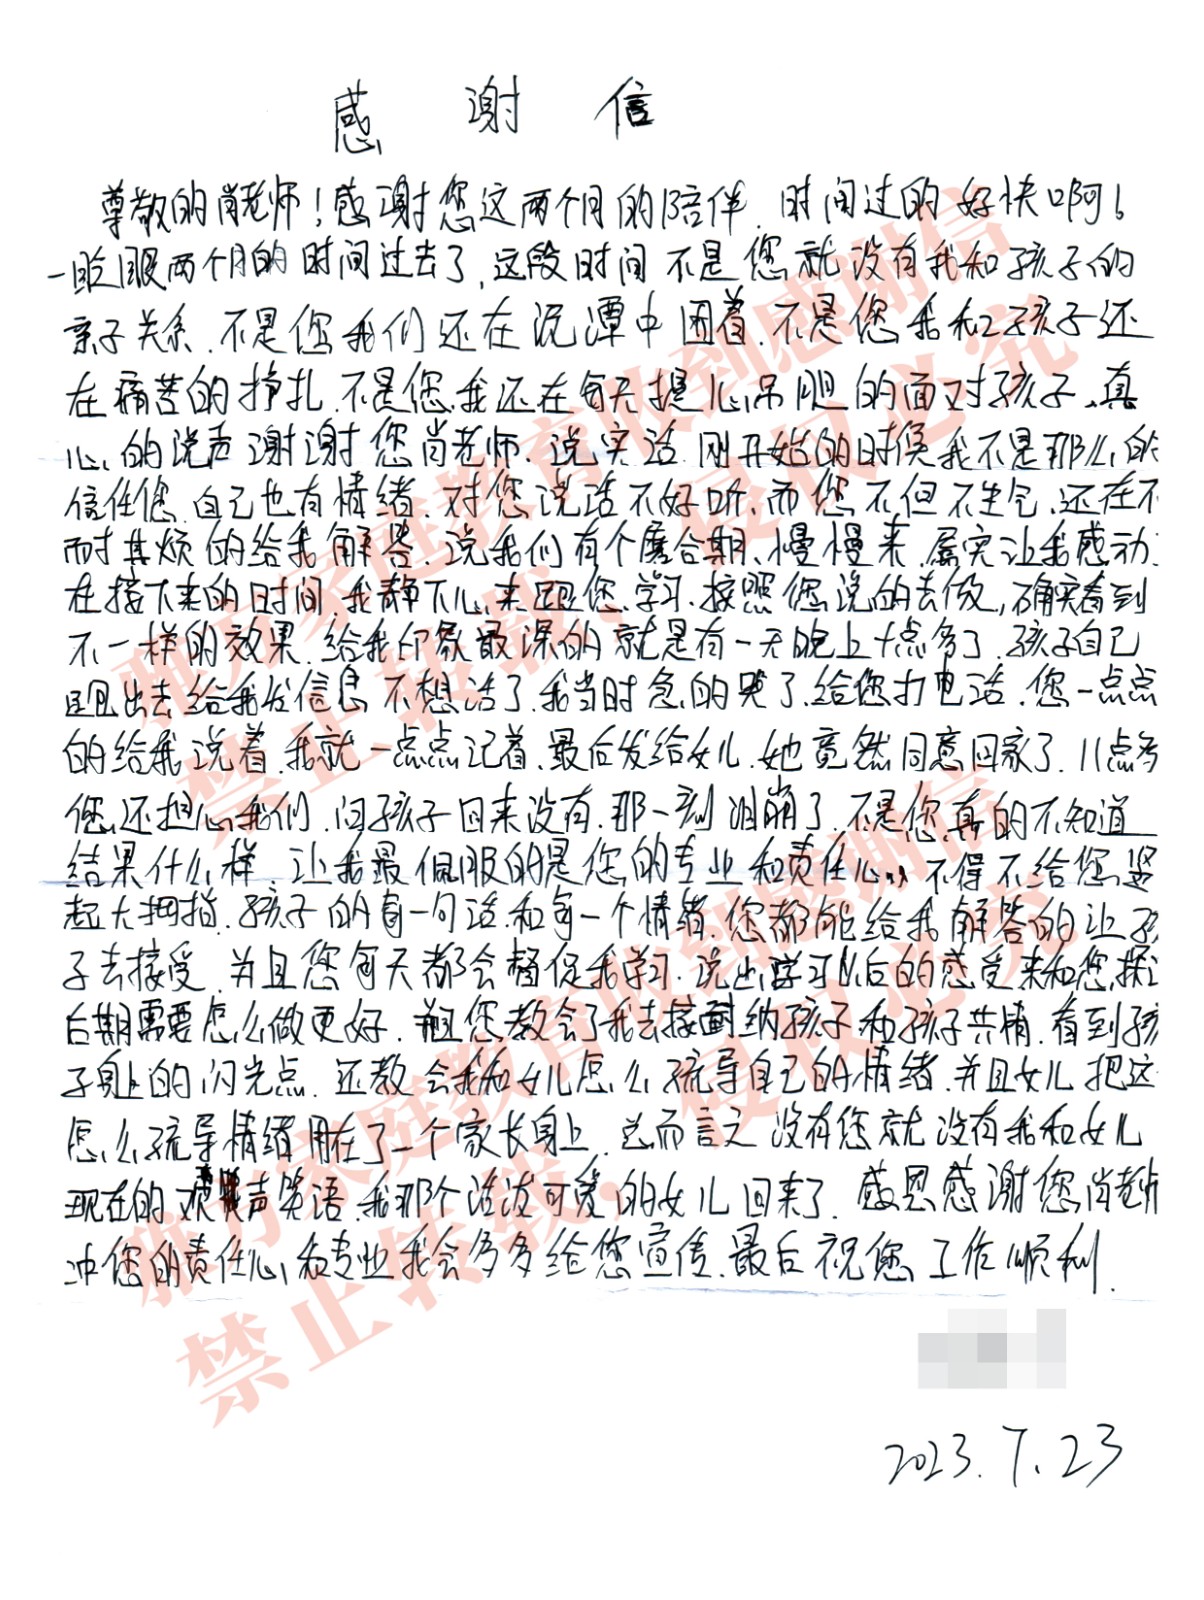 感 谢 信
尊敬的肖老师！感谢您这两个月的陪伴.时间过的好快啊！
一眨眼两个月的时间过去了,这段时间不是您就没有我和孩子的
亲子关系.不是您我们还在沉潭中困着.不是您我和孩子还
在痛苦的挣扎.不是您我还在每天提心吊胆的面对孩子.真
心的说声谢谢您肖老师.说实话.刚开始的时候我不是那么的
信任您.自己也有情绪.对您说话不好听.而您不但不生气.还在不
耐其烦的给我解答.说我们有个磨合期、慢慢来.属实让我感动.
在接下来的时间.我静下心来跟您学习.按照您说的去做,确实看到
不一样的效果.给我印象最深的就是有一天晚上十点多了.孩子自己
跑出去给我发信息不想活了.我当时急的哭了.给您打电话.您一点点
的给我说着.我就一点点记着.最后发给女儿.她竟然同意回家了.11点多
您还担心我们.问孩子回来没有.那一刻泪崩了.不是您真的不知道
结果什么样.让我最佩服的是您的专业和责任心.不得不给您竖
起大拇指.孩子的每一句话和每一个情绪.您都能给我解答的让孩
子去接受.并且您每天都会督促我学习.说出学习以后的感受来和您探讨
后期需要怎么做更好.并且您教会了我去接纳孩子和孩子共情.看到孩
子身上的闪光点.还教会我和女儿怎么疏导自己的情绪.并且女儿把这
怎么疏导情绪用在了一个家长身上.总而言之没有您就没有我和女儿
现在的欢声笑语.我那个活泼可爱的女儿回来了.感恩感谢您肖老师
冲您的责任心和专业我会多多给您宣传.最后祝您工作顺利.
2023.7.23
聊方家庭教育收到感谢信
禁止转载，侵权必究
聊方家庭教育收到感谢信
禁止转载，侵权必究